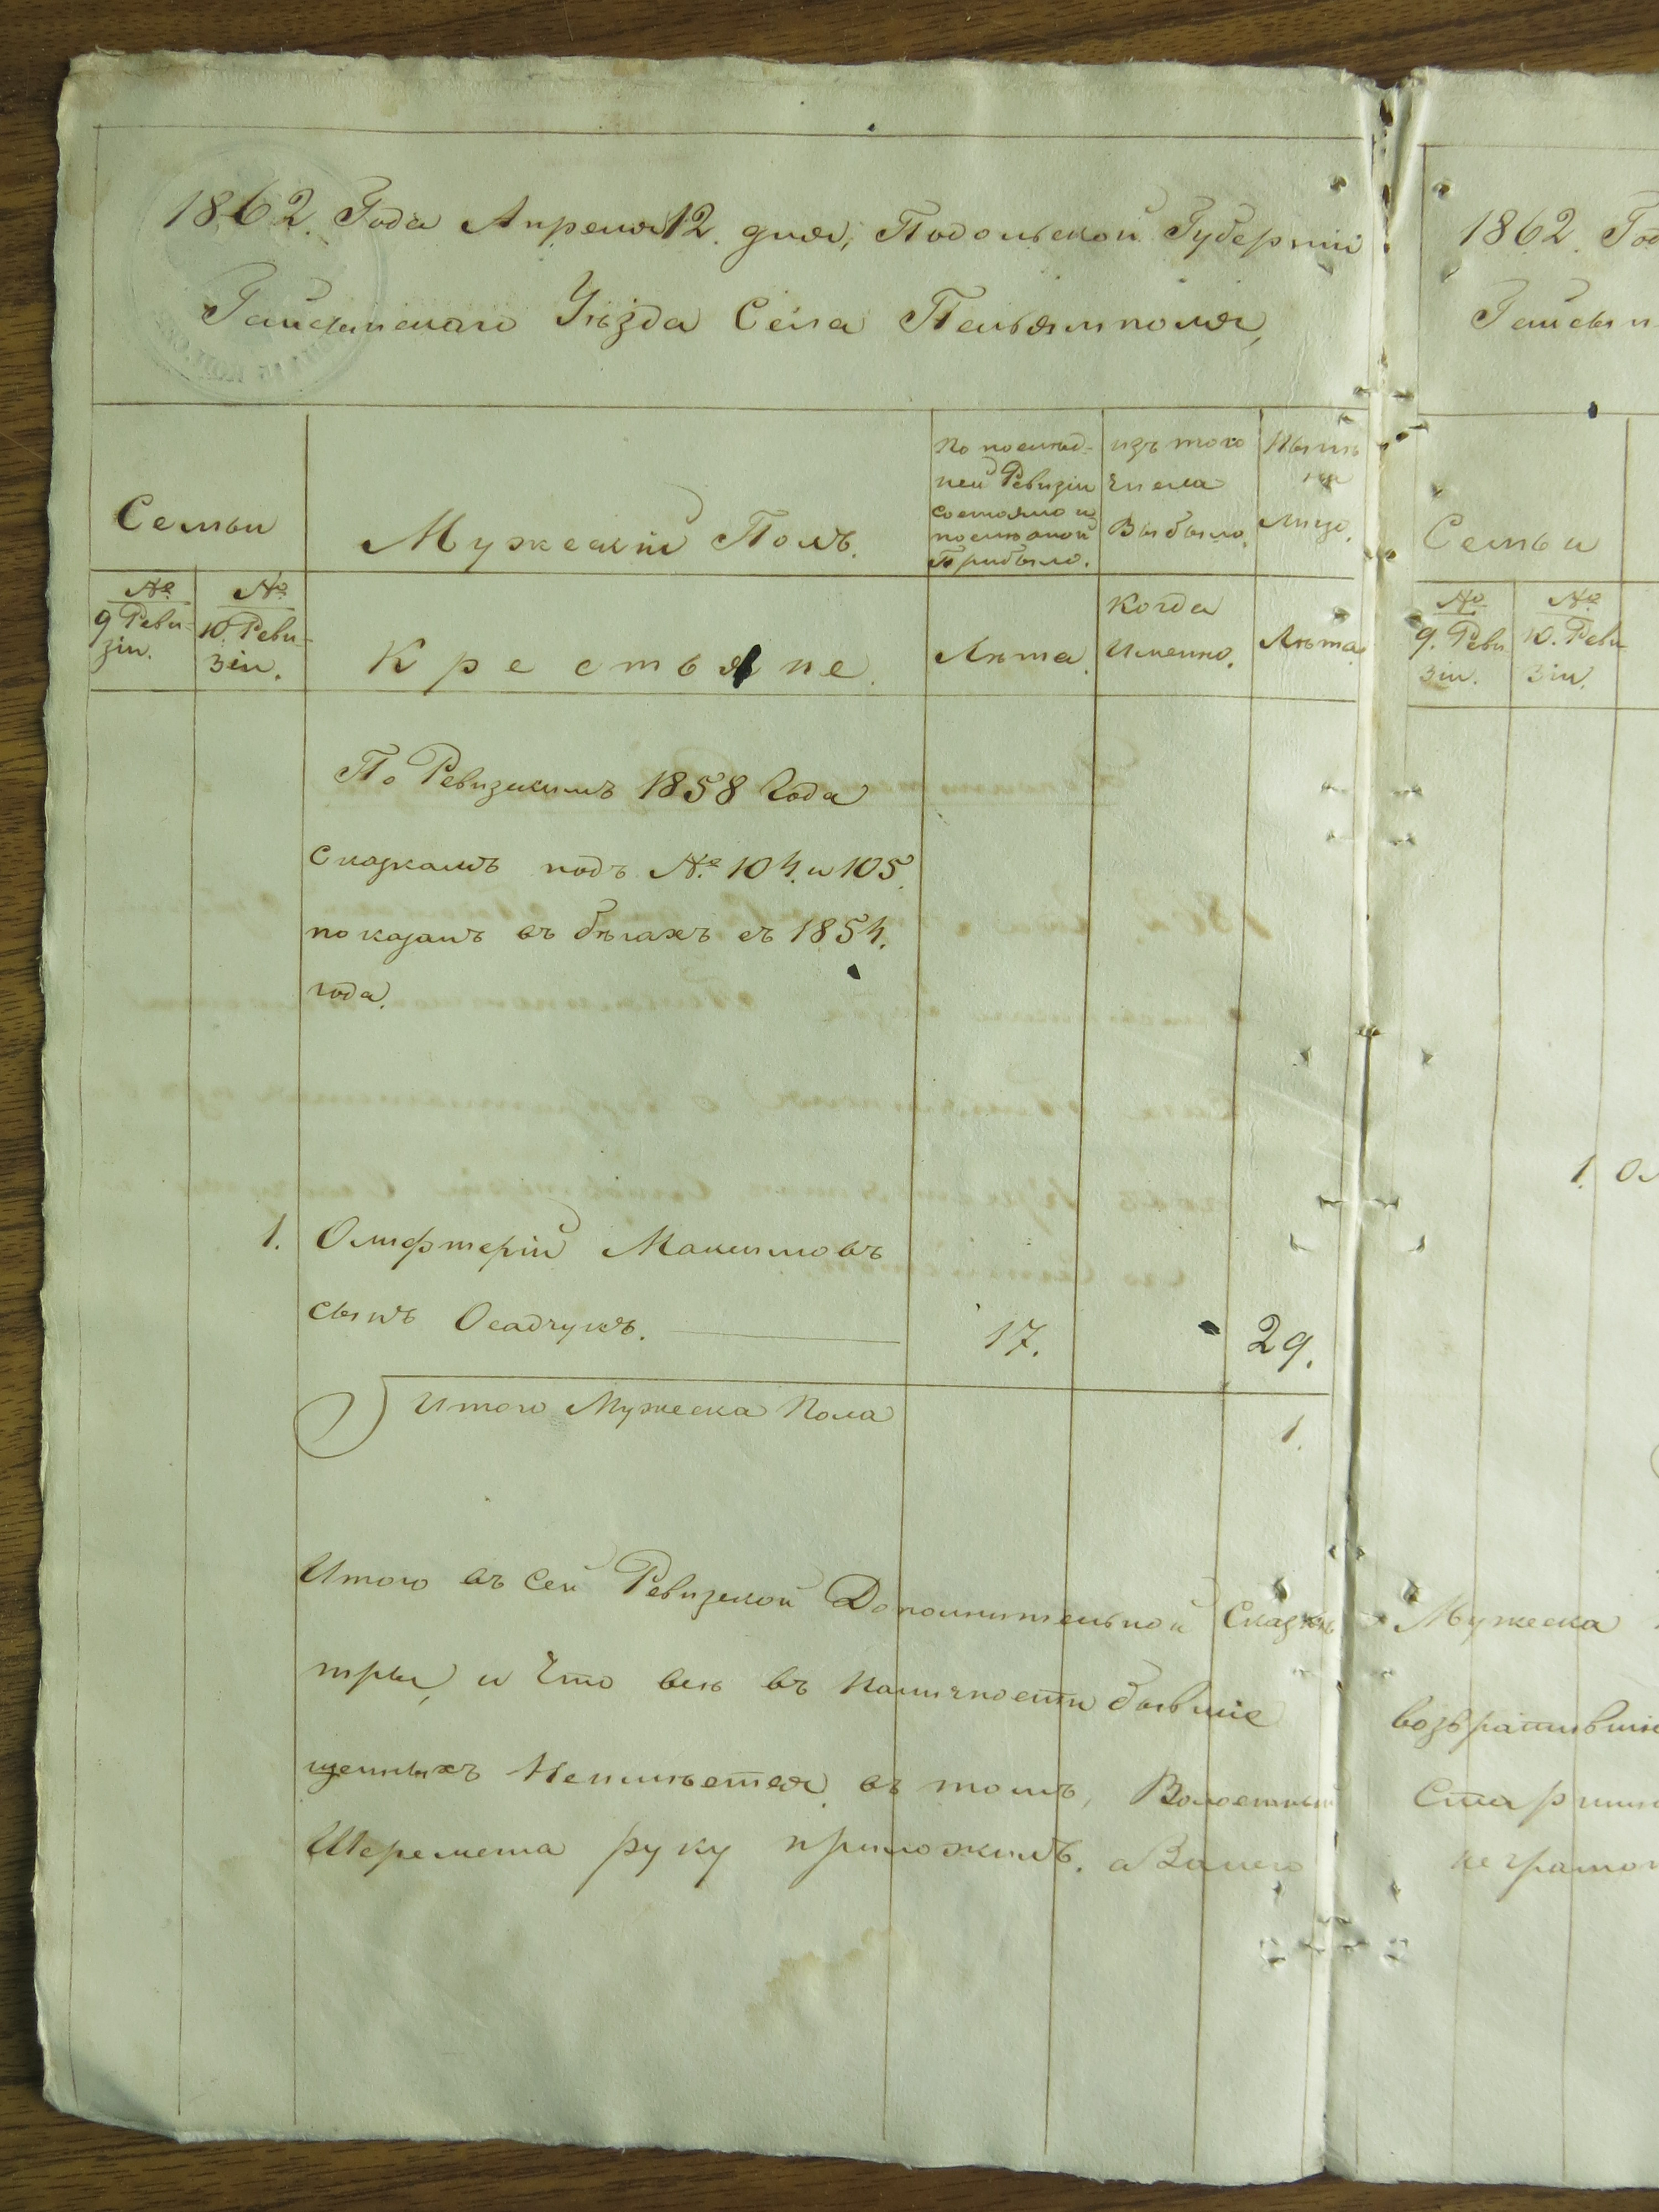 1862. Года Апреля 12. дня, Подольской Губерніи
Гайсинскаго Уѣзда Села
Семьи
Мужескій Полъ.
По послѣд-
ней Ревизіи
состояло и
послѣ оной
Прибыло.
изъ того
числа
Выбыло.
Нынѣ
на
лицо.
№ 9 Реви-
зіи.
№ 10. Реви-
зіи.
Крестьяне.
Лѣта.
Когда
Именно.
Лѣта.
По Ревизскимъ 1858 Года
Сказкамъ подъ № 104. и 105.
показанъ въ бѣгахъ съ 1854.
года.
1. Олифтерій Максимовъ
сынъ Осадчукъ.
17.
29.
Итого Мужеска Пола
1.
Итого въ Сей Ревизской Дополнительной Сказкѣ
и что всѣ въ Наличности бывшіе
въ томъ, Волостный
Шеремета руку приложилъ. а
1862. Год
Семьи
№ 9. Реви
зіи.
№ 10. Реви
зіи.
1.
Мужеска